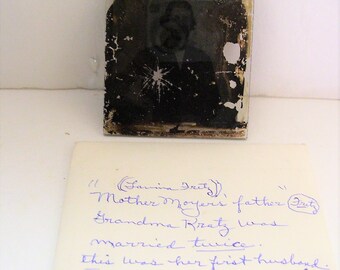 " (Lavina Fretz)
Mother Moyers' father" Fretz
Grandma Kratz was
married twice.
this was her first husband.